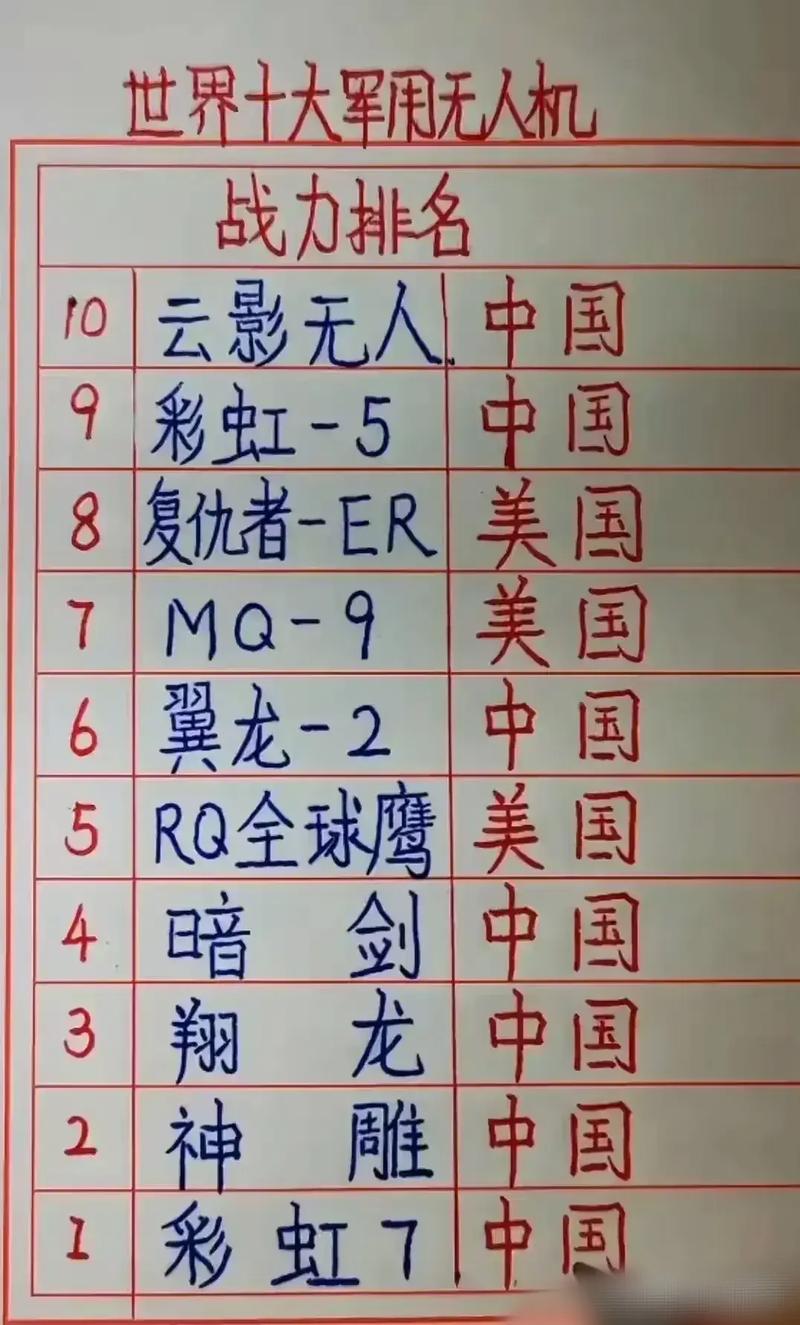 世界十大军用无人机
战力排名
10 云影无人 中国
9 彩虹-5 中国
8 复仇者-ER 美国
7 MQ-9 美国
6 翼龙-2 中国
5 RQ全球鹰 美国
4 暗剑 中国
3 翔龙 中国
2 神雕 中国
1 彩虹7 中国